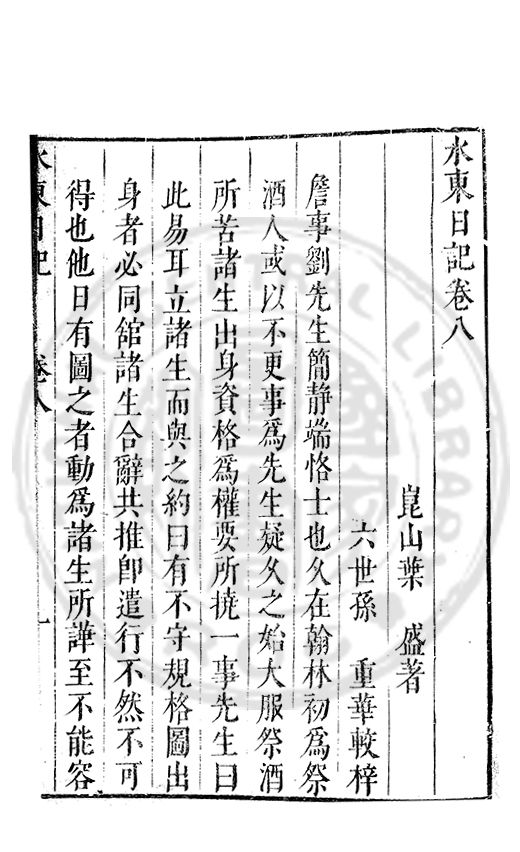 水東日記卷八
崑山葉 盛著
六世孫 重華較梓
詹事劉先生簡靜端恪士也久在翰林初爲祭
酒人或以不更事爲先生疑久之始大服祭酒
所苦諸生出身資格爲權要所撓一事先生曰
此易耳立諸生而與之約曰有不守規格圖出
身者必同舘諸生合辭共推即遣行不然不可
得也他日有圖之者動爲諸生所譁至不能容
水東日記 卷八 一